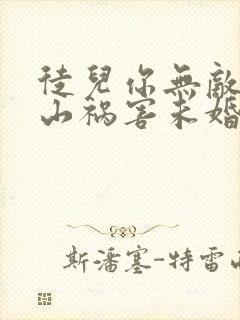 徒兒你無敵
山禍害未婚
斯潘塞-特雷西